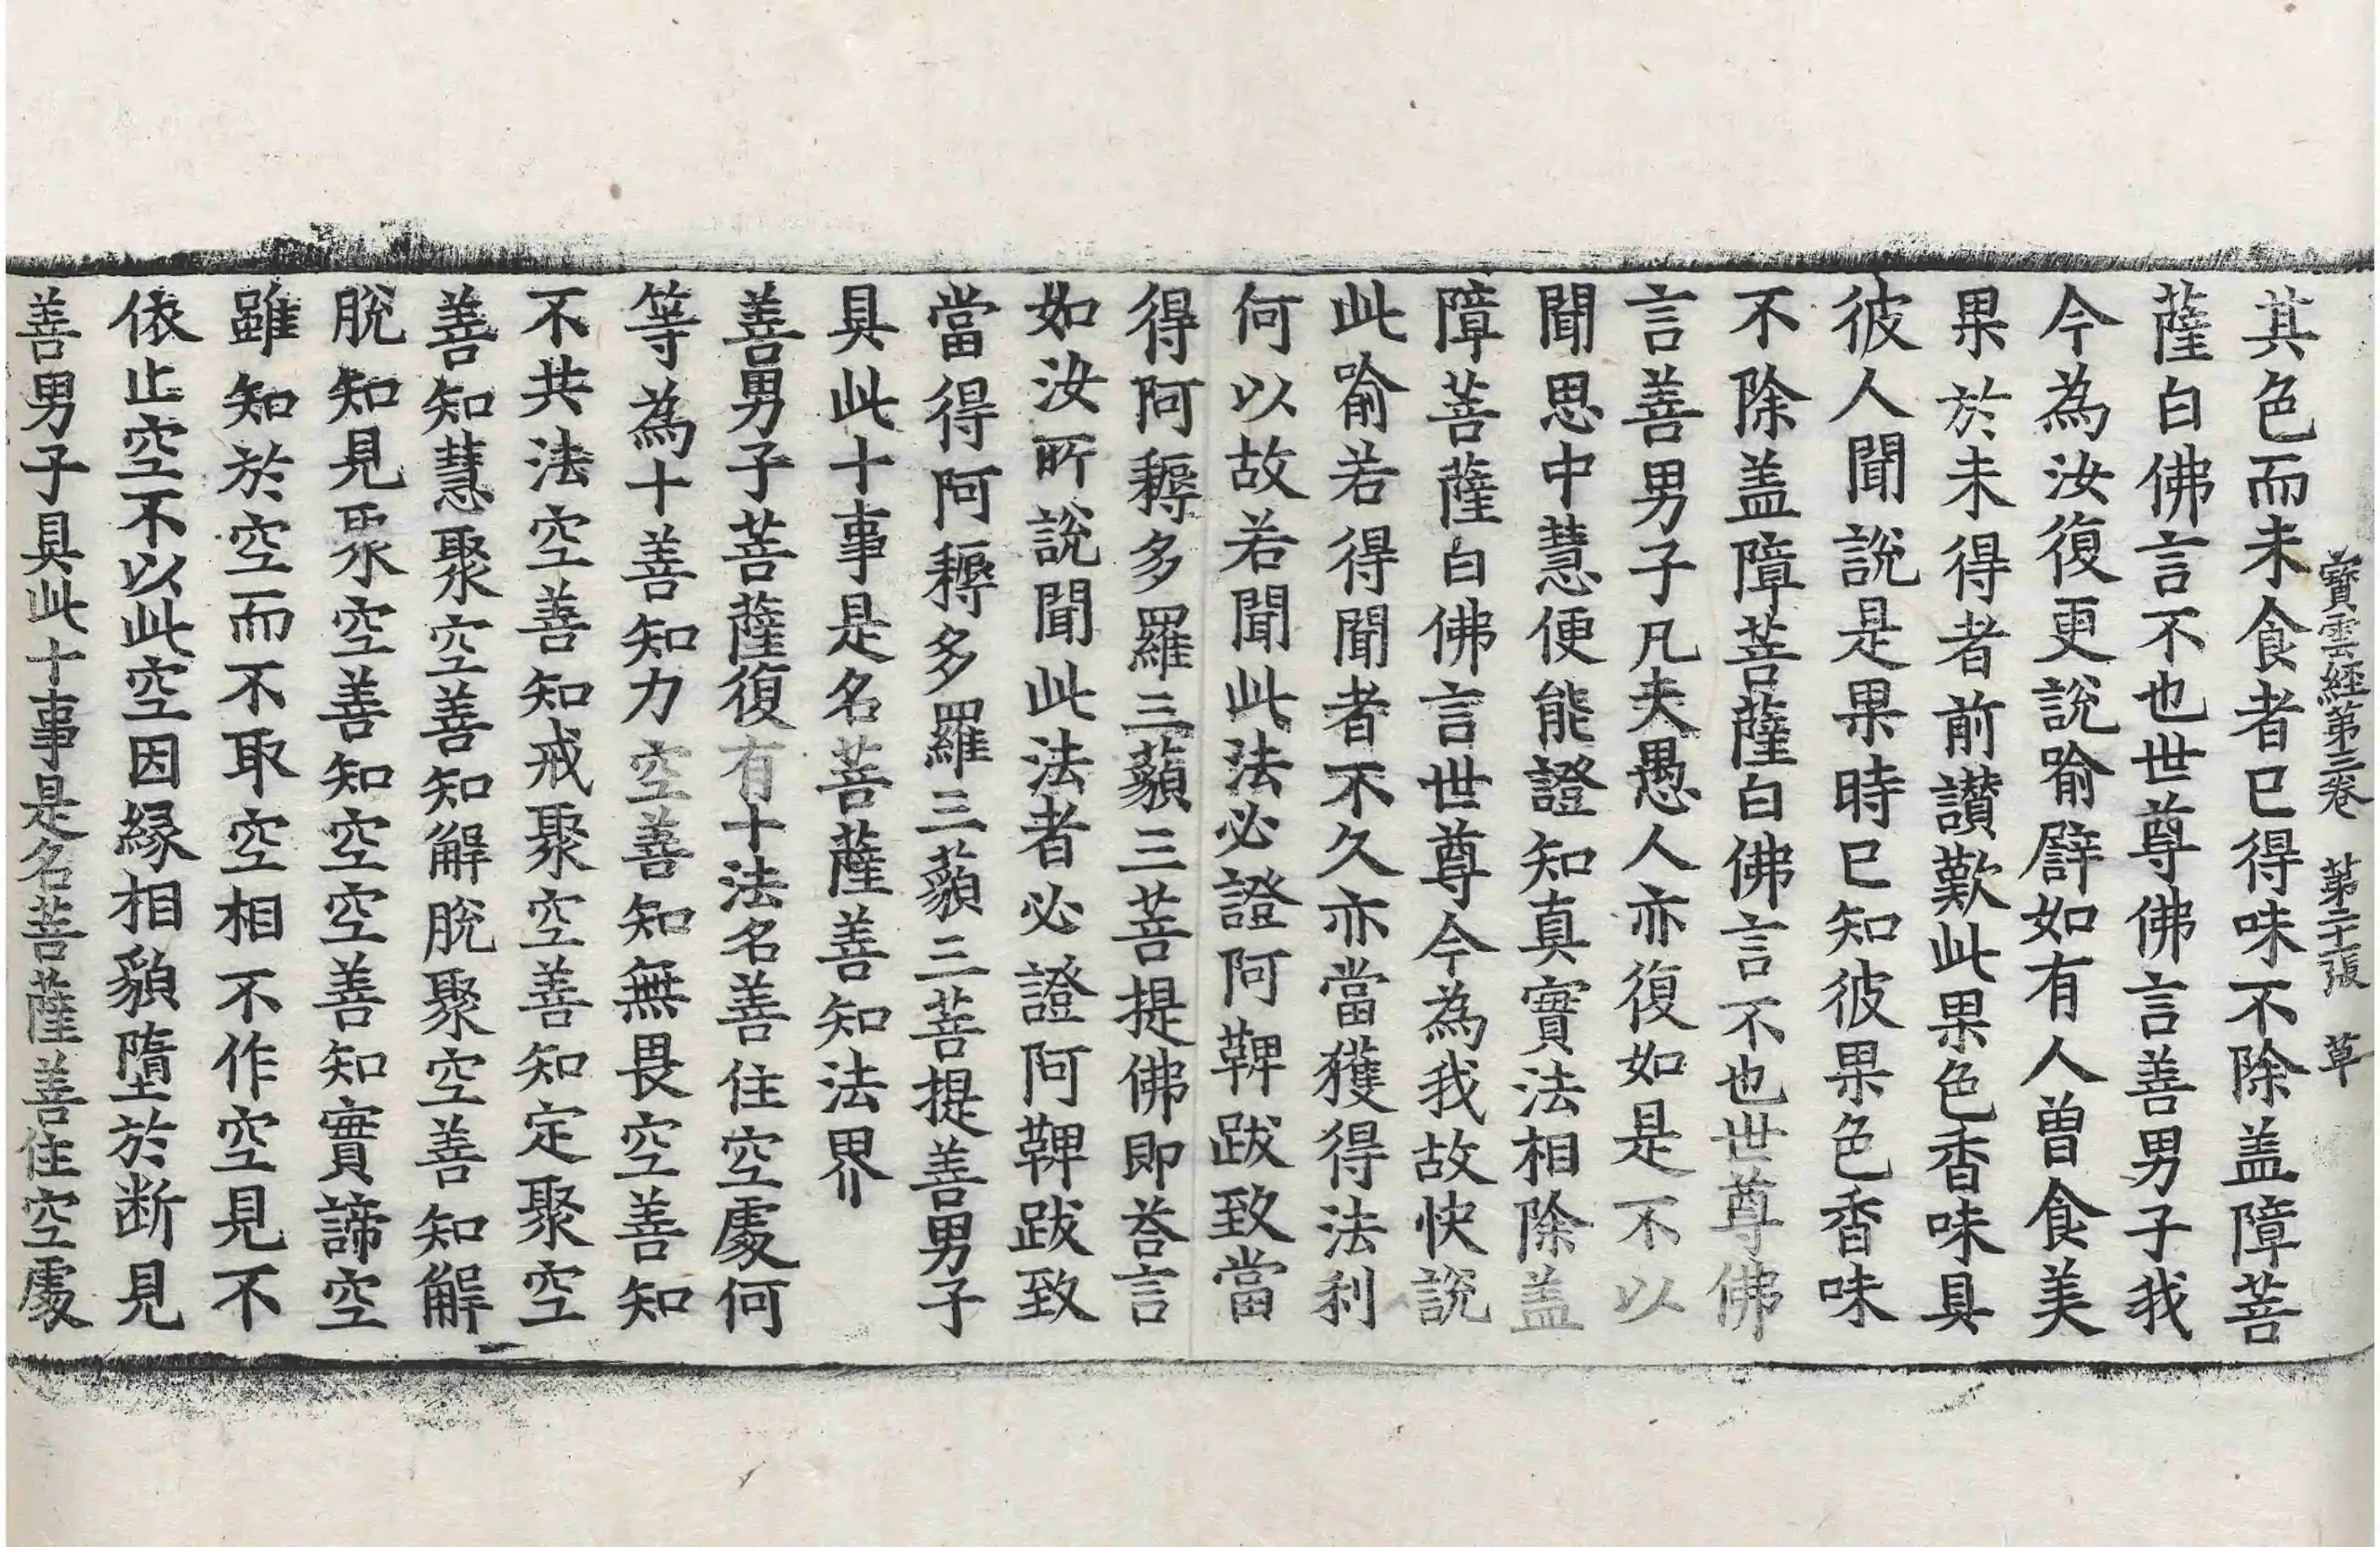 寳雲經第三卷 第二十張 草
其色而未食者已得味不除盖障菩
薩白佛言不也世尊佛言善男子我
今為汝復更說喻譬如有人曽食美
果於未得者前讃歎此果色香味具
彼人聞說是果時已知彼果色香味
不除盖障菩薩白佛言不也世尊佛
言善男子凡夫愚人亦復如是不以
聞思中慧便能證知真實法相除盖
障菩薩白佛言世尊今為我故快說
此喻若得聞者不久亦當獲得法利
何以故若聞此法必證阿鞞跋致當
得阿耨多羅三藐三菩提佛即荅言
如汝所說聞此法者必證阿鞞跋致
當得阿耨多羅三藐三菩提善男子
具此十事是名菩薩善知法界
善男子菩薩復有十法名善住空處何
等為十善知力空善知無畏空善知
不共法空善知戒聚空善知定聚空
善知慧聚空善知解脫聚空善知解
脫知見聚空善知空空善知實諦空
雖知於空而不取空相不作空見不
依止空不以此空因縁相貌墮於断見
善男子具此十事是名菩薩善住空處